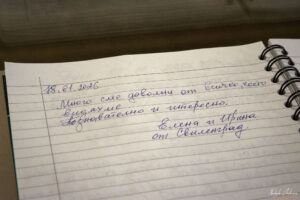 18.01.2026
Много сме доволни от всичко, което
видяхме
Познавателно и интересно.
Елена и Ирина
от Свиленград